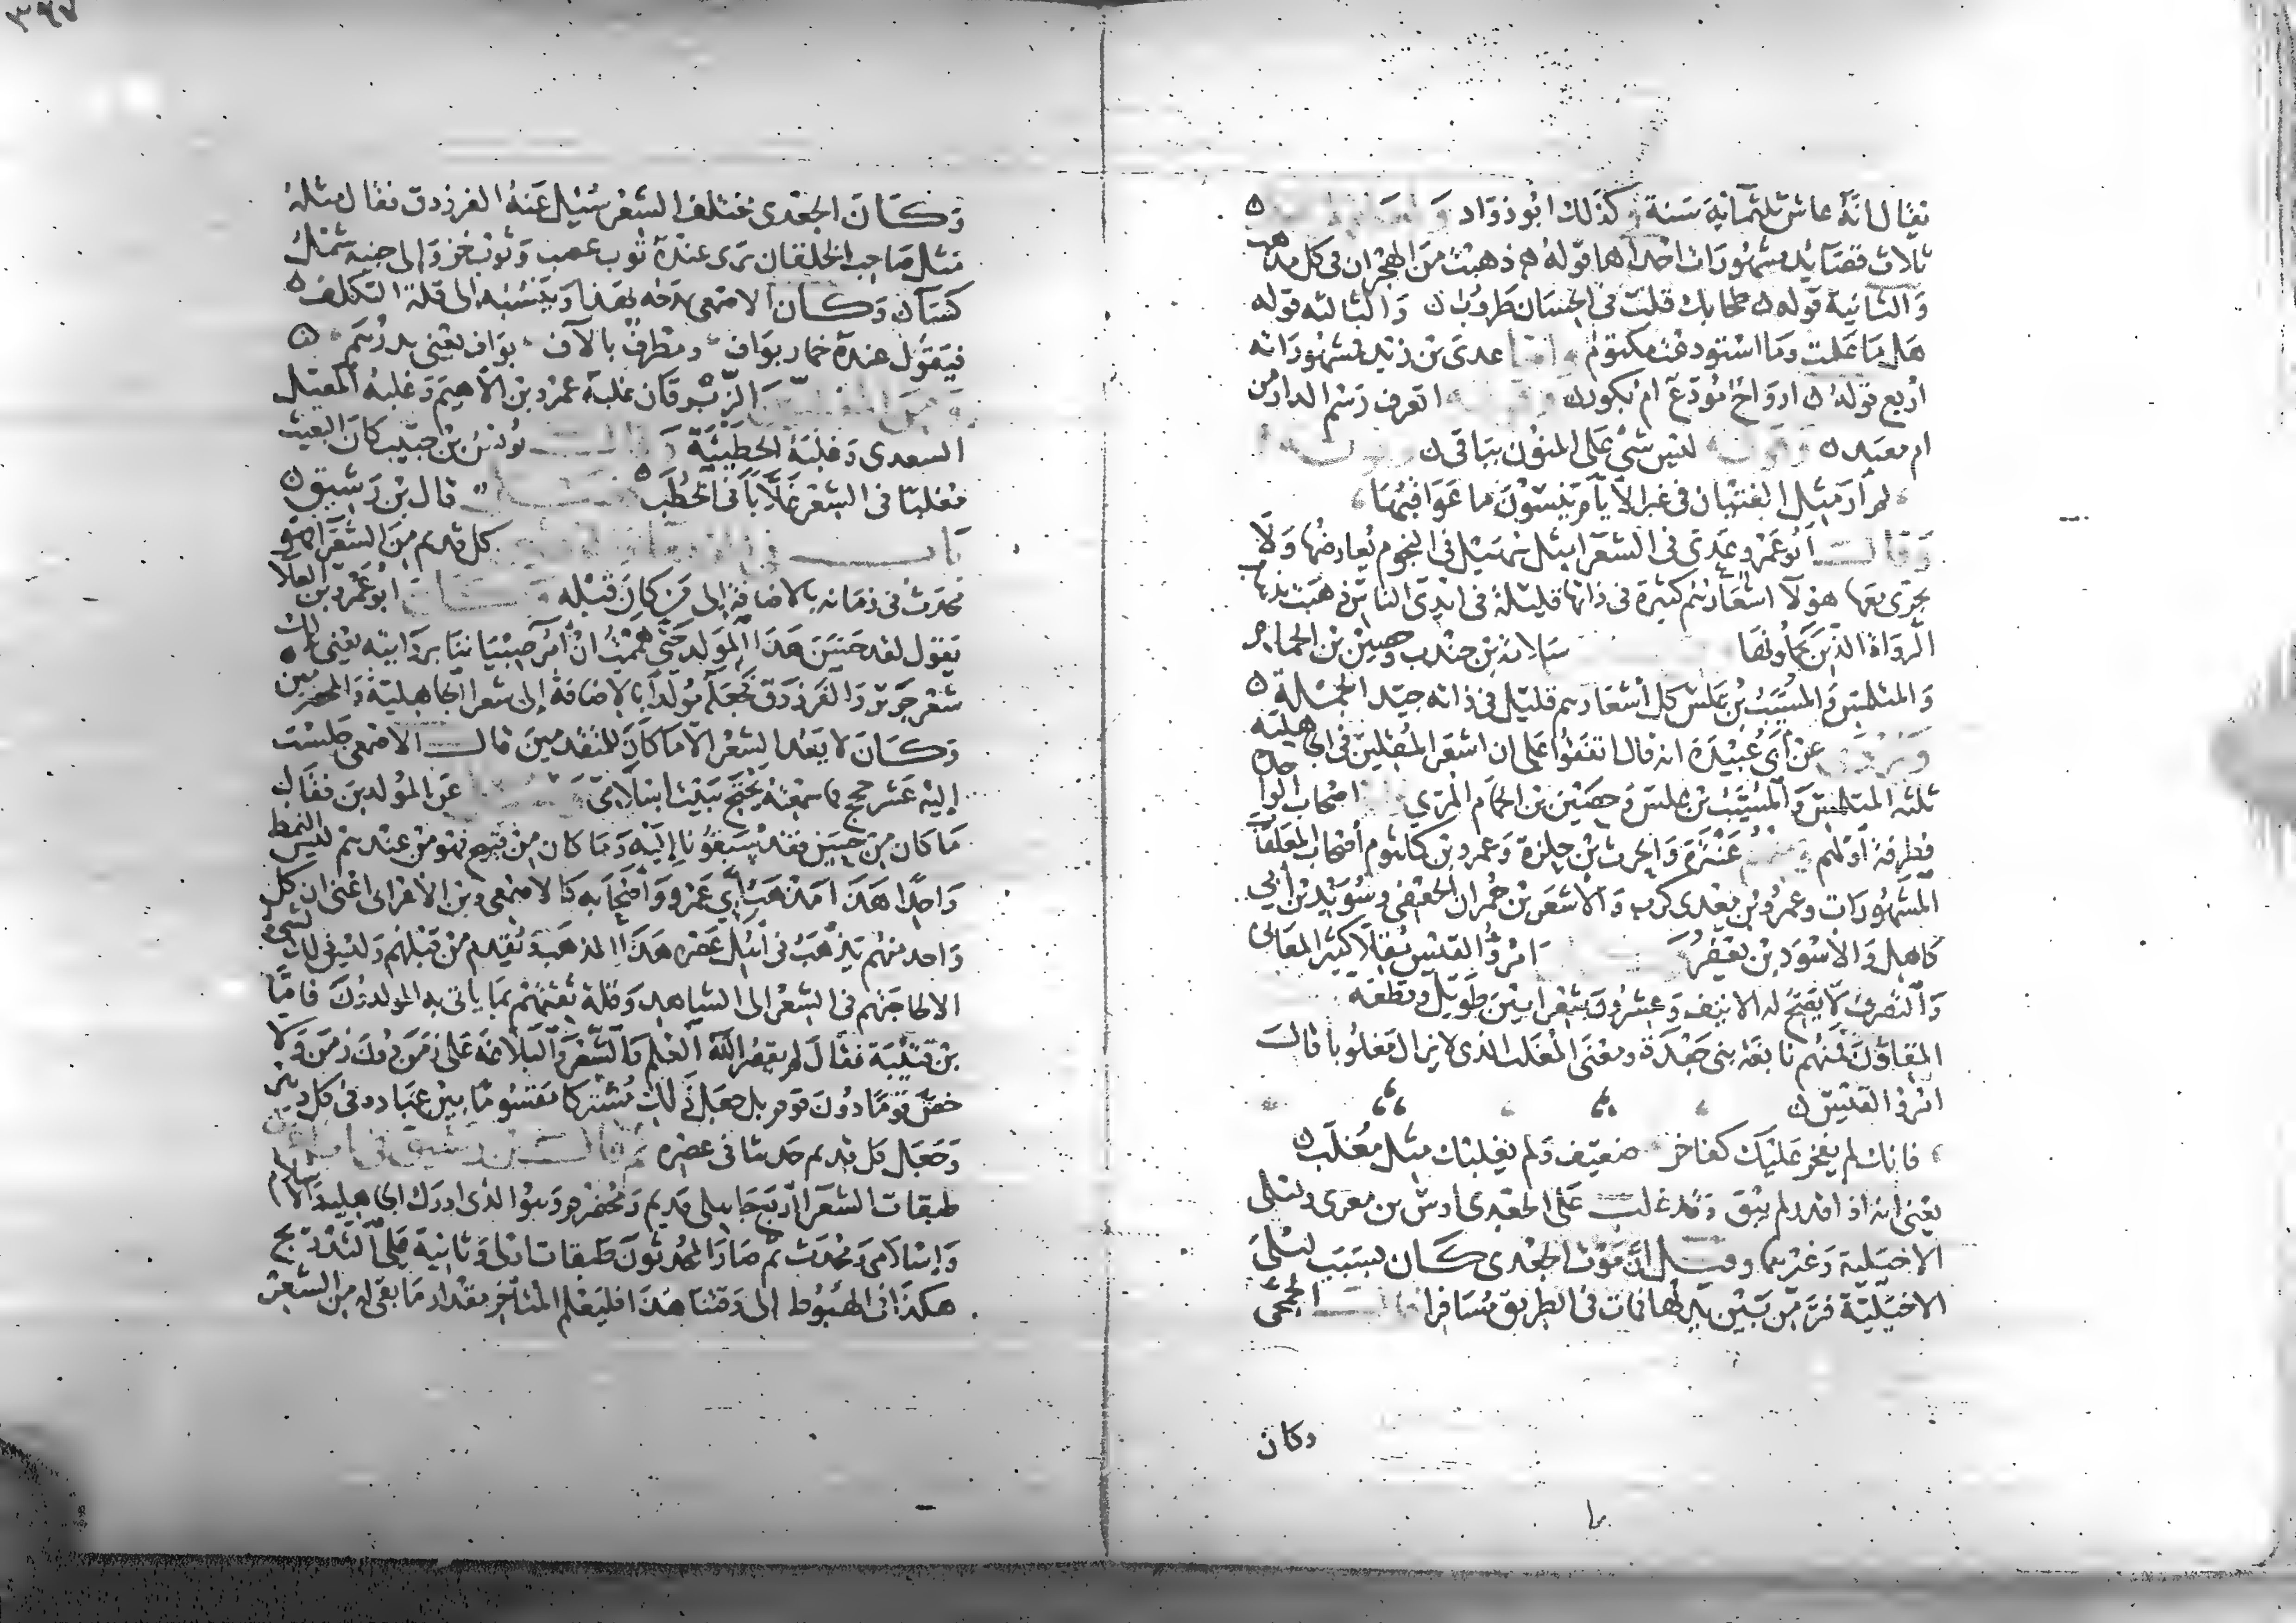 يقال انه عاش ثلثمائة سنة وكذلك ابو ذواد
ثلاث قصائد مشهورات احداها قوله ذهبت من الهجران في كل مذهب
والثانية قوله طحا بك قلب في الحسان طروب والثالثه قوله
هل ما علمت وما استودعت مكتوم عدي بن زيد مشهوراته
اربع قوله ارواح مودع ام بكور اتعرف رسم الدار من
ام معبد ليس شي على المنون بباقي
لم ار مثل الفتيان في غبر الايام ينسون ما عواقبها
وقال ابو عمرو عدي في الشعرا مثل سهيل في النجوم يعارضها ولا
يجري معها هولا اشعارهم كثيرة في ذاتها قليلة في ايدي الناس ذهبت بذهاب
الرواة الذين يحملونها سلامة بن جندب وحصين بن الحمام
والمتلمس والمسيب بن علس كل اشعارهم قليل في ذاته جيد الجملة
عن ابي عبيدة انه قال اتفقوا على ان اشعر المقلين في الجاهلية
ثلثه المتلمس والمسيب بن علس وحصين بن الحمام المري اصحاب الواحدة
فطرفة اولهم عنترة والحرث بن حلزة وعمرو بن كلثوم اصحاب المعلقات
المشهورات وعمرو بن معدي كرب والاشعر بن حمران الجعفي وسويد بن ابي
كاهل والاسود بن يعفر امرؤ القيس مقلا كثير المعاني
والتصرف لا يصح له الا نيف وعشرون شعرا بين طويل وقطعه
المقلون منهم نابغة بني جعدة ومعنى المغلب الذي لا يزال مغلوبا قالت
امرؤ القيس
فانك لم يفخر عليك كفاخر ضعيف ولم يغلبك مثل مغلب
يعني انه اذا اقدر لم يبق وقد غلب على الجعدي اوس بن مغرى وليلى
الاخيلية وغيرهما وقيل ان موت الجعدي كان بسبب ليلى
الاخيلية فر من بين يديها فمات في الطريق مسافرا الجمحي
وكان
٣٩٧
وكان الجعدي مختلف الشعر سئل عنه الفرزدق فقال مثله
مثل صاحب الخلقان ترى عنده ثوب عصب وثوب خز والى جنبه شملة
كساك وكان الاصمعي يمدحه بهذا وينسبه الى قلة التكلف
فيقول عنده خمار بواف ومطرف بالآف بواف يعني بدرهم
الزبرقان غلبه عمرو بن الاهيم وغلبه المقبل
السعدي وغلبه الحطيئة يونس بن حبيب كان البعيث
مغلبا في الشعر غلابا في الخطب قال بن رشيق
باب كل قديم من الشعرا فهو
محدث في زمانه بالاضافة الى من كان قبله ابو عمرو بن العلا
يقول لقد حسن هذا المولد حتى هممت ان آمر صبياننا بروايته يعني بذلك
شعر جرير والفرزدق فجعله مولدا بالاضافة الى شعر الجاهلية والمخضرمين
وكان لا يعد الشعر الا ما كان للمتقدمين قال الاصمعي جلست
إليه عشر حجج فما سمعته يحتج ببيت اسلامي عن المولدين فقال
ما كان من حسن فقد سبقونا إليه وما كان من قبيح فهو من عندهم ليس النمط
واحدا هذا مذهب ابي عمرو واصحابه كالاصمعي وبن الاعرابي اعني ان كل
واحد منهم يذهب في اهل عصره هذا المذهب ويقدم من قبلهم وليس ذلك لشي
الا لحاجتهم في الشعر الى الشاهد وقلة ثقتهم بما ياتي به المولدون فاما
بن قتيبة فقال لم يقصر الله العلم والشعر والبلاغة على زمن دون زمن ولا
خص قوما دون قوم بل جعل ذلك مشتركا مقسوما بين عباده في كل دهر
وجعل كل قديم حديثا في عصره ثم قال بن رشيق في
طبقات الشعرا اربع جاهلي قديم ومخضرم وهو الذي ادرك الجاهلية والاسلام
وإسلامي ومحدث ثم صار المحدثون طبقات اولى وثانية على التدريج
هكذا في الهبوط الى وقتنا هذا فليعلم المتأخر مقدار ما بقي له من الشعر